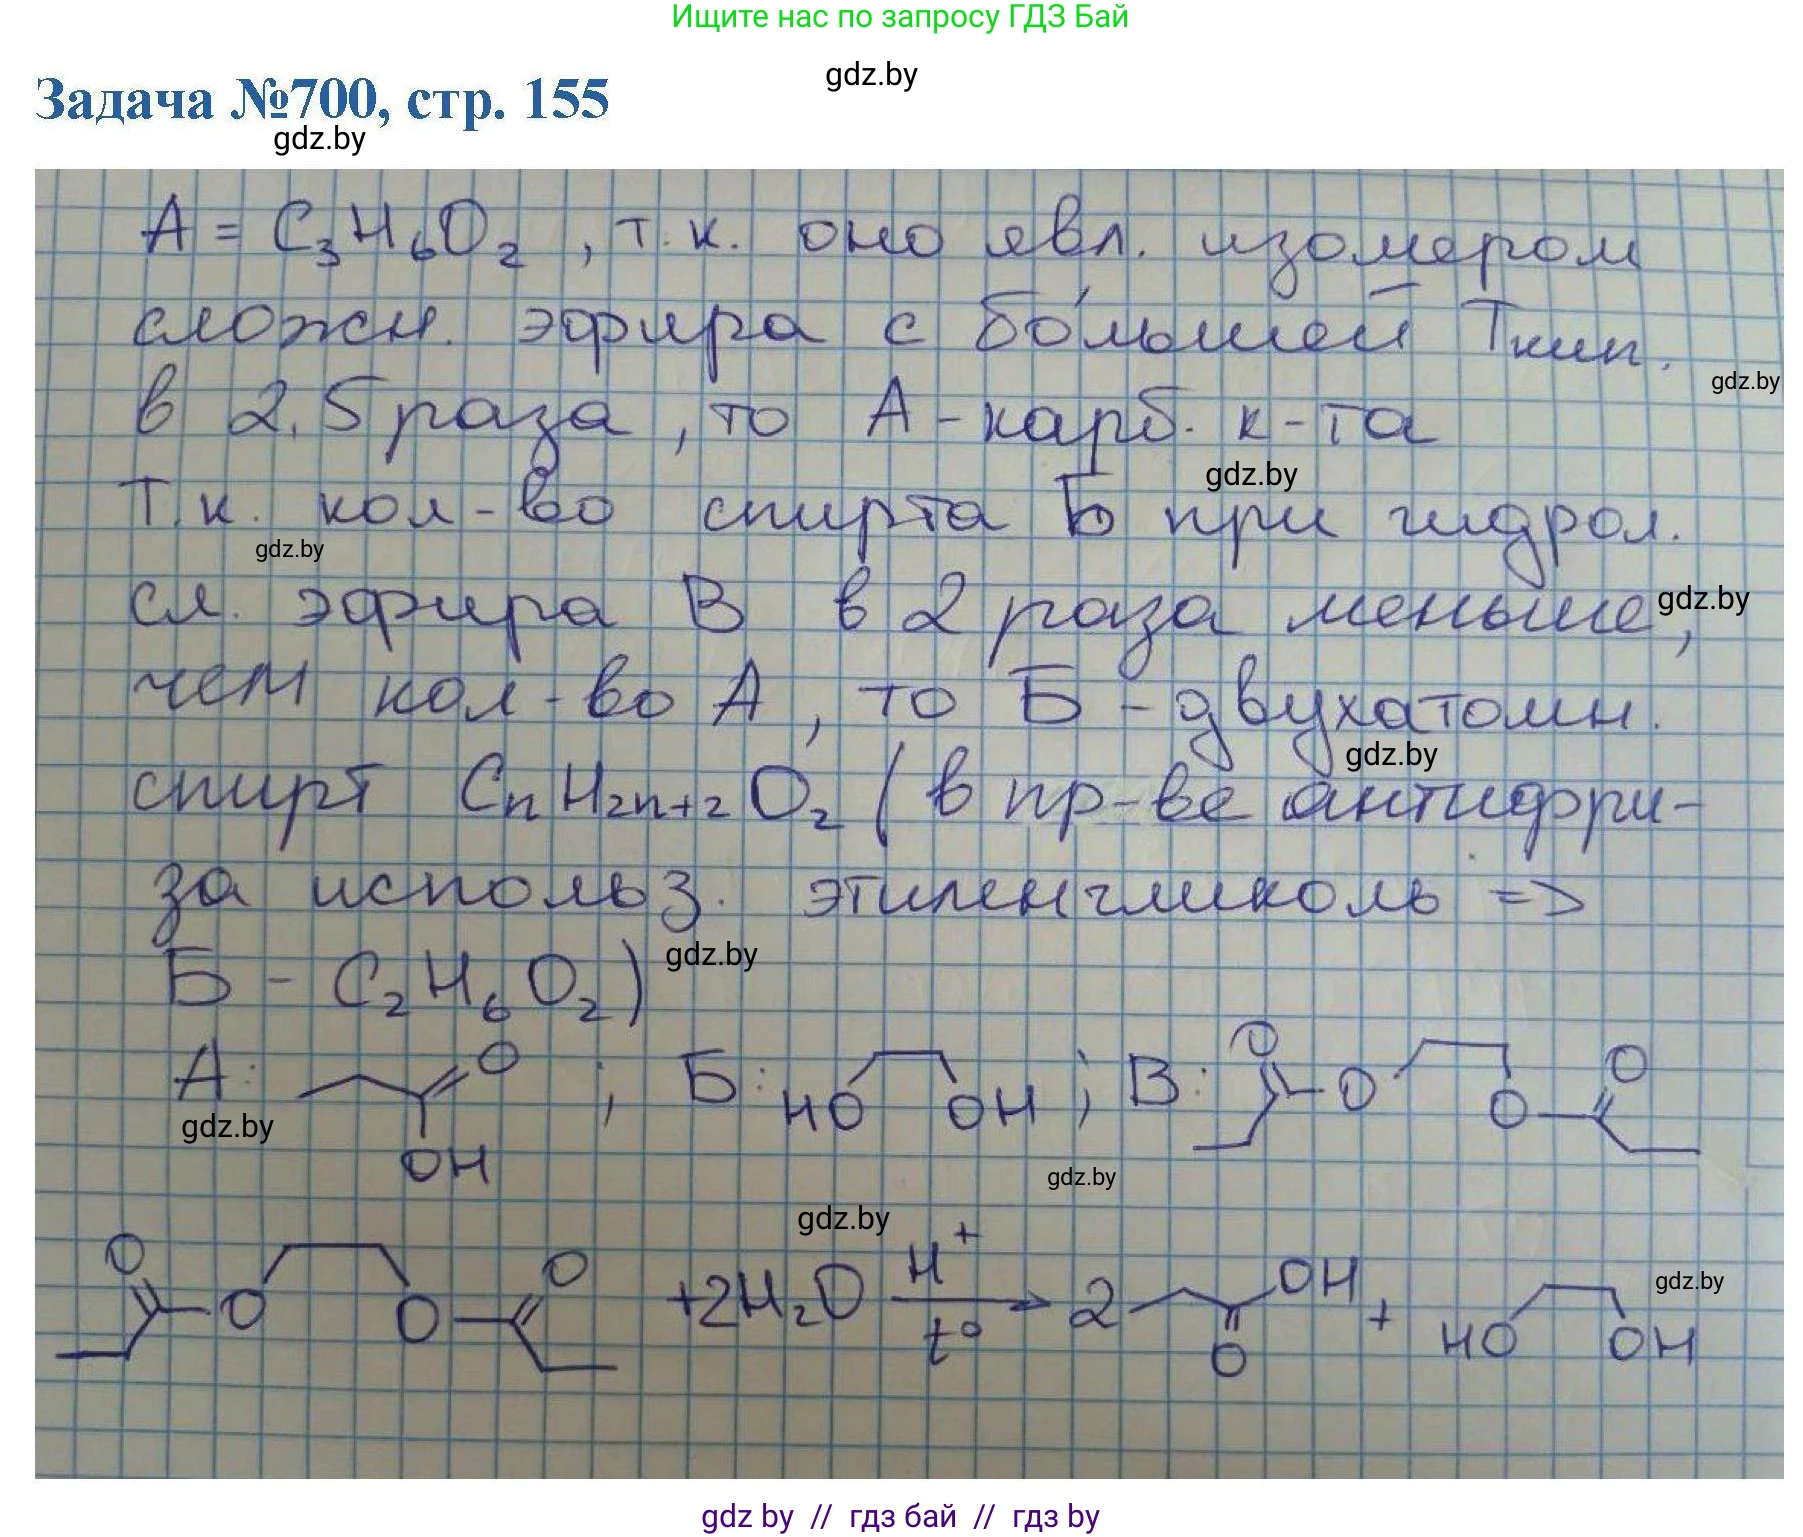 Ищите нас по запросу ГДЗ Бай
gdz.by
Задача №700, стр. 155
gdz.by
A = C₃H₆O₂, т.к. оно явл. изомером
сложн. эфира с бо́льшей Tкип.
gdz.by
в 2,5 раза, то А - карб. к-та
gdz.by
Т.к. кол-во спирта Б при гидрол.
gdz.by
сл. эфира В в 2 раза меньше,
gdz.by
чем кол-во А, то Б - двухатомн.
gdz.by
спирт CₙH₂ₙ₊₂O₂ (в пр-ве антифри-
за использ. этиленгликоль =>
gdz.by
Б - C₂H₆O₂)
А: O OH ; Б: HO OH ; В: O O O O
gdz.by
gdz.by
gdz.by
O O O O +2H₂O H⁺ t° 2 OH O + HO OH
gdz.by
gdz by // гдз бай // гдз by